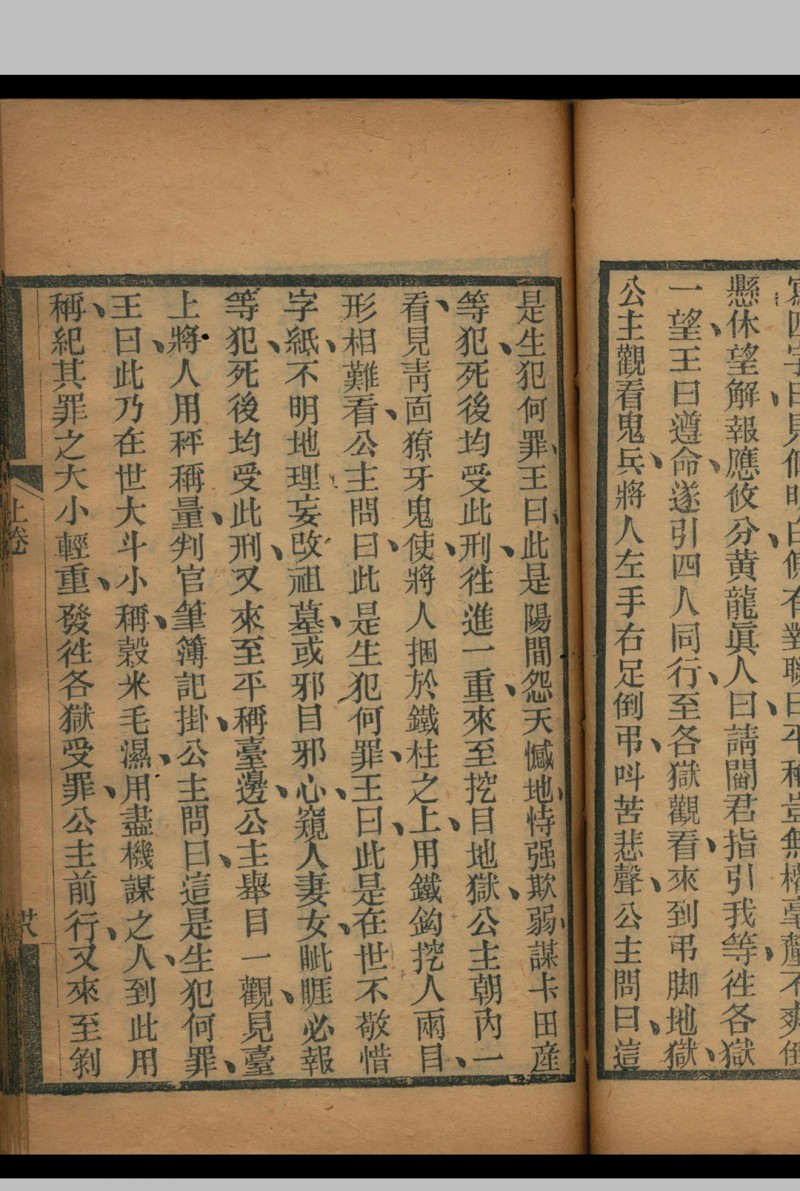 寫四字曰見個明白傍有對聯曰平稱豈無權毫釐不爽
懸休望解報應攸分黄龍眞人曰請閻君指引我等徃各獄
一望、王曰遵命、遂引四人同行、至各獄觀看、來到弔脚地獄、
公主觀看鬼兵、將人左手右足倒弔、呌苦悲聲、公主問曰、這
是生犯何罪、王曰、此是陽間怨天憾地、恃强欺弱、謀卡田產
等犯、死後均受此刑、徃進一重、來至挖目地獄、公主朝內一
看、見靑面獠牙鬼使、將人捆於鐵柱之上、用鐵鈎挖人兩目、
形相難看、公主問曰、此是生犯何罪、王曰、此是在世不敬惜
字紙、不明地理妄改祖墓、或邪目邪心、窺人妻女、眦睚必報
等犯、死後均受此刑、又來至平稱臺邊、公主舉目一觀、見臺
上將人用秤稱量、判官筆簿記掛、公主問曰、這是生犯何罪、
王曰、此乃在世大斗小稱、穀米毛濕、用盡機謀之人、到此用
稱、紀其罪之大小輕重、發徃各獄受罪、公主前行、又來至剝
上卷
廿八